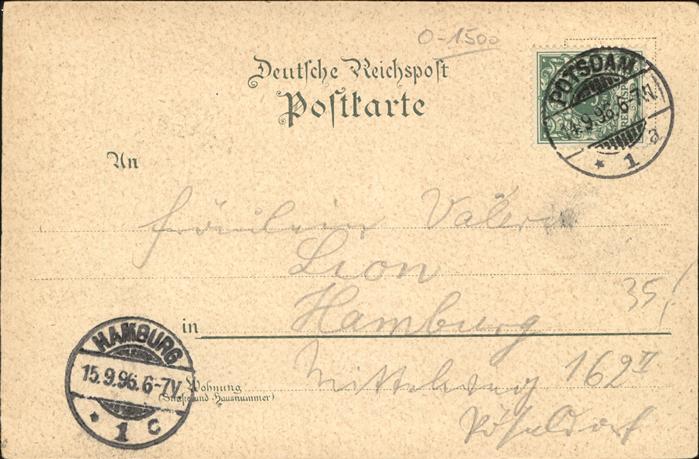 0-1500
Deutsche Reichspost
Postkarte
POTSDAM
14.9.96.6-7N.
* 1 a
An
Fräulein Valerie
Lion
35!
in Hamburg
HAMBURG
15.9.96.6-7V
* 1 c
Wohnung
(Straße und Hausnummer)
Mittelweg 162 II
Pöseldorf